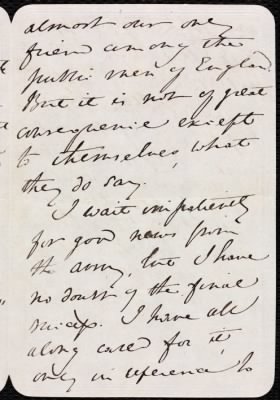 almost our only
friend among the
public men of England
But it is not of great
consequence except
to themselves, what
they do say.
I wait impatiently
for good news from
the army, but I have
no doubt of the final
I have all
along care for it,
only in reference to